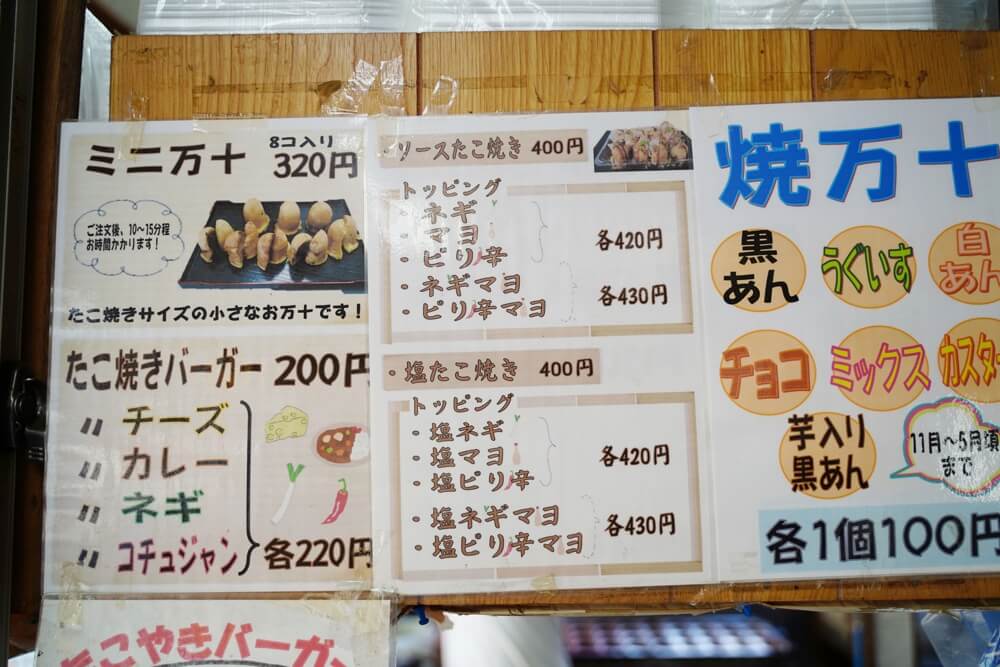 ミニ万十 8コ入り 320円
ご注文後、10〜15分程
お時間かかります!
たこ焼きサイズの小さなお万十です!
たこ焼きバーガー 200円
〃 チーズ
〃 カレー
〃 ネギ
〃 コチュジャン 各220円
たこやきバーガー
・ソースたこ焼き 400円
トッピング
・ネギ
・マヨ 各420円
・ピリ辛
・ネギマヨ 各430円
・ピリ辛マヨ
・塩たこ焼き 400円
トッピング
・塩ネギ
・塩マヨ 各420円
・塩ピリ辛
・塩ネギマヨ 各430円
・塩ピリ辛マヨ
焼万十
黒あん
うぐいす
白あん
チョコ
ミックス
カスター
芋入り
黒あん
11月〜5月頃
まで
各1個100円